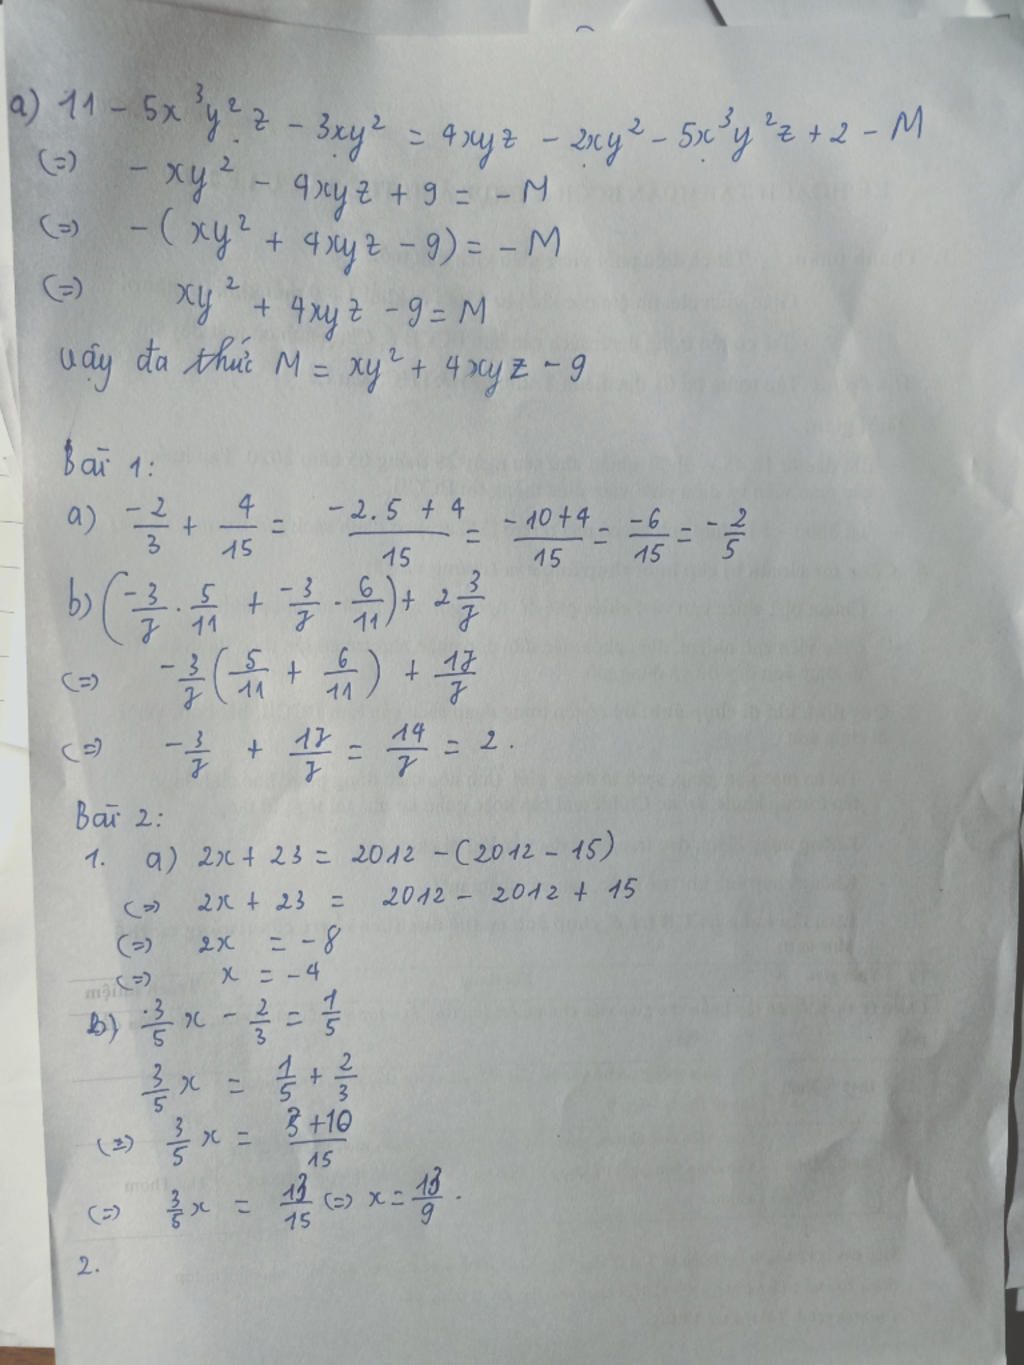 a) 11 - 5x³y²z - 3xy² = 4xyz - 2xy² - 5x³y²z + 2 - M
(=) - xy² - 4xyz + 9 = - M
(=) - ( xy² + 4xyz - 9) = - M
(=) xy² + 4xyz - 9 = M
vậy đa thức M = xy² + 4xyz - 9
Bài 1:
a) -2/3 + 4/15 = (-2.5 + 4)/15 = (-10+4)/15 = -6/15 = -2/5
b) (-3/7 . 5/11 + -3/7 . 6/11) + 2 3/7
(=) -3/7 (5/11 + 6/11) + 17/7
(=) -3/7 + 17/7 = 14/7 = 2.
Bài 2:
1. a) 2x + 23 = 2012 - (2012 - 15)
(=) 2x + 23 = 2012 - 2012 + 15
(=) 2x = -8
(=) x = -4
b) 3/5 x - 2/3 = 1/5
3/5 x = 1/5 + 2/3
(=) 3/5 x = (3+10)/15
(=) 3/5 x = 13/15 (=) x = 13/9.
2.